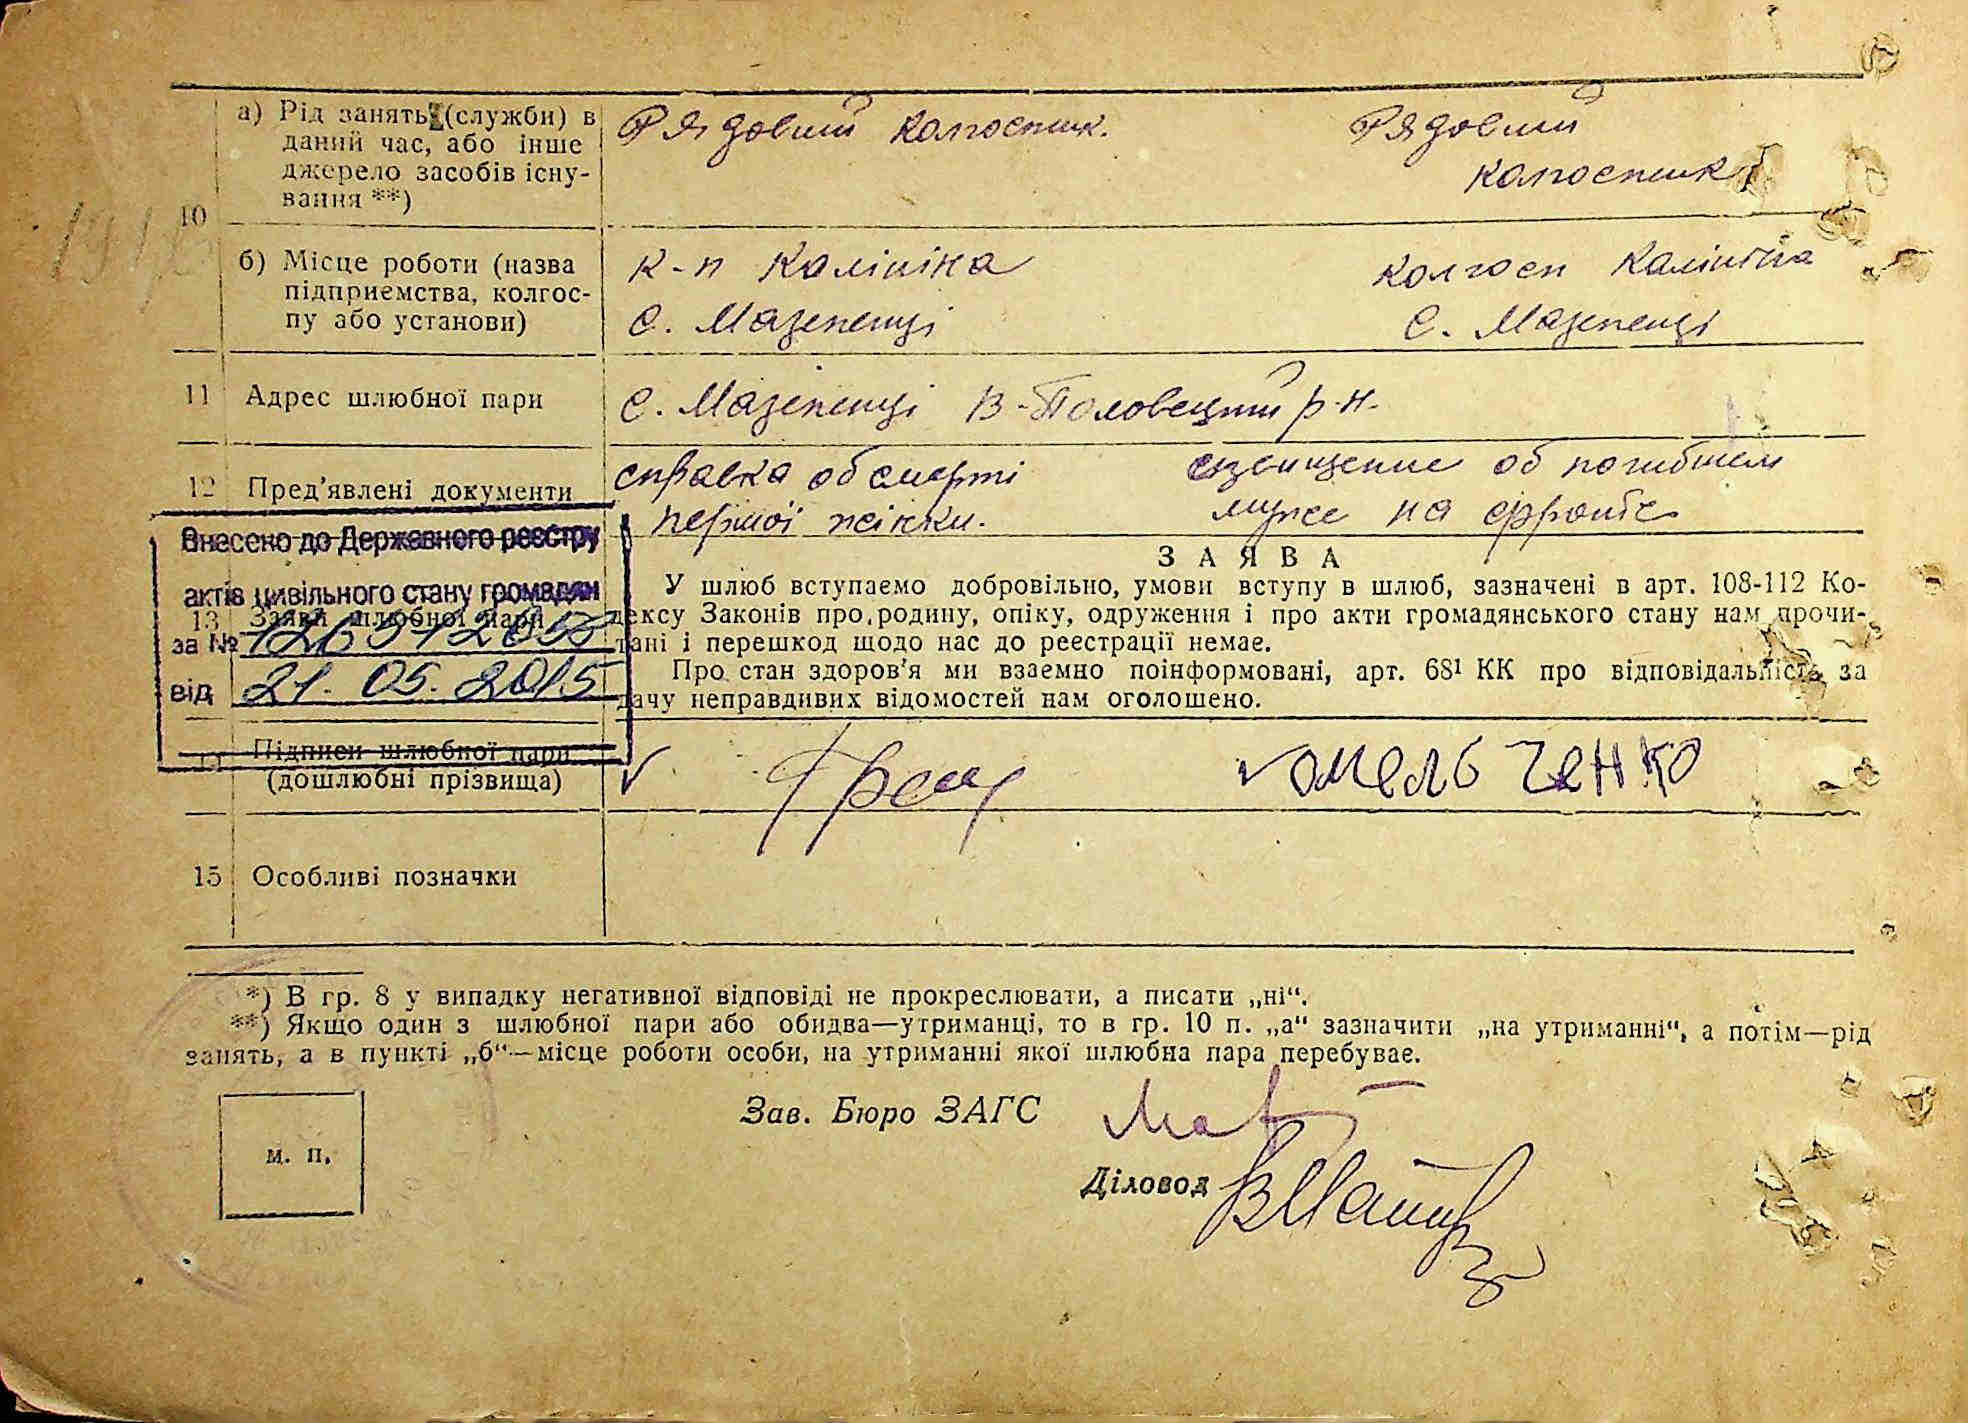 10
а) Рід занять (служби) в
даний час, або інше
джерело засобів існу-
вання **)
Рядовий колгоспник.
Рядовий
колгоспник
б) Місце роботи (назва
підприємства, колгос-
пу або установи)
к-п Калініна
с. Мазепенці
колгосп Калініна
с. Мазепенці
11 Адрес шлюбної пари
с. Мазепенці В-Половецький р-н.
12 Пред'явлені документи
справка об смерті
першої жінки.
извищение об погибшем
муже на фронте
Внесено до Державного реєстру
актів цивільного стану громадян
за №
від 21. 05. 2015
13 Заяви шлюбної пари
ЗАЯВА
У шлюб вступаємо добровільно, умови вступу в шлюб, зазначені в арт. 108-112 Ко-
дексу Законів про родину, опіку, одруження і про акти громадянського стану нам прочи-
тані і перешкод щодо нас до реєстрації немає.
Про стан здоров'я ми взаємно поінформовані, арт. 68¹ КК про відповідальність за
дачу неправдивих відомостей нам оголошено.
14 Підписи шлюбної пари
(дошлюбні прізвища)
Омельченко
15 Особливі позначки
*) В гр. 8 у випадку негативної відповіді не прокреслювати, а писати „ні“.
**) Якщо один з шлюбної пари або обидва—утриманці, то в гр. 10 п. „а“ зазначити „на утриманні“, а потім—рід
занять, а в пункті „б“—місце роботи особи, на утриманні якої шлюбна пара перебуває.
Зав. Бюро ЗАГС
м. п.
Діловод